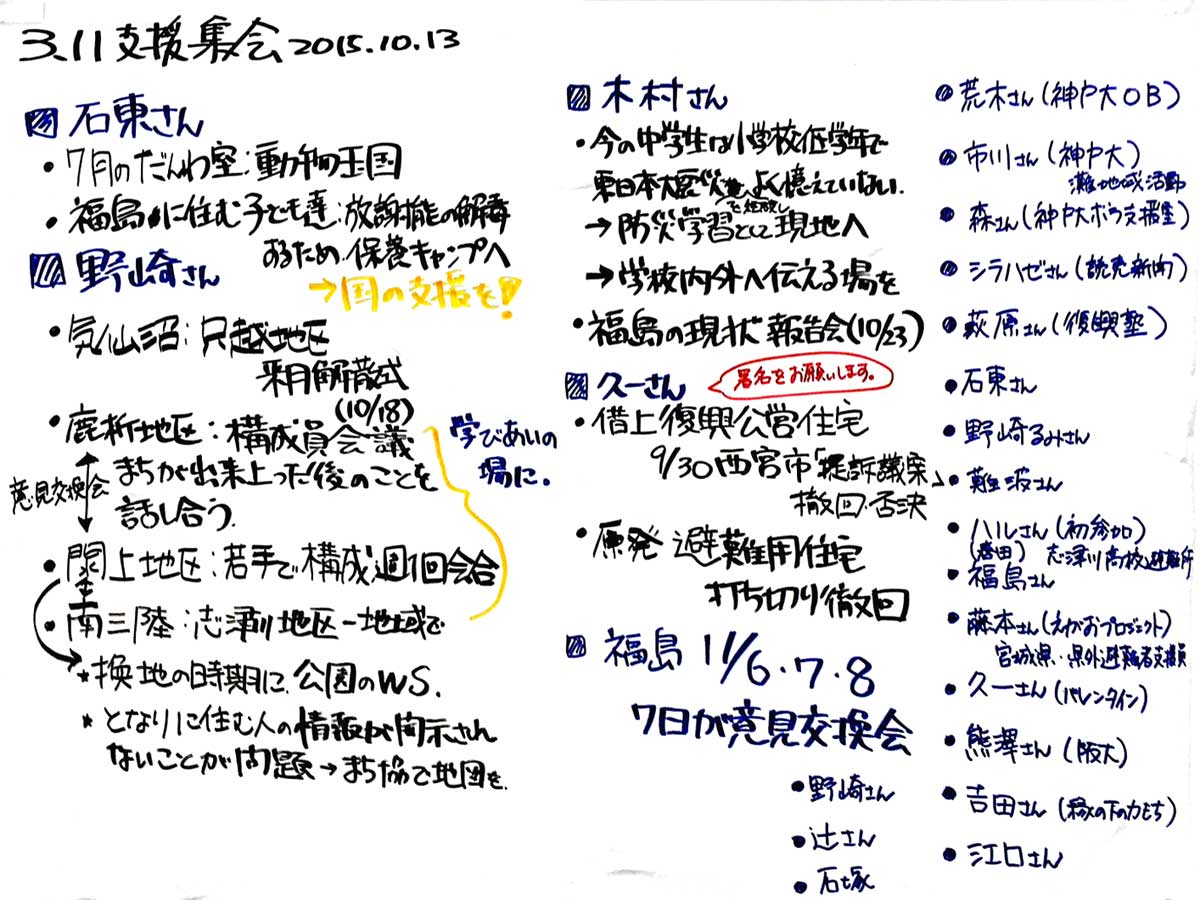 3.11支援集会 2015.10.13
石東さん
・7月のだんわ室:動物王国
・福島に住む子ども達:放射能の解毒
するため、保養キャンプへ
→国の支援を!
野崎さん
・気仙沼:只越地区
来月解散式
(10/18)
・鹿折地区:構成員会議
まちが出来上った後のことを
話し合う。
意見交換会
学びあいの
場に。
・閖上地区:若手で構成 週1回会合
・南三陸:志津川地区-地域で
*換地の時期に、公園のWS.
*となりに住む人の情報が開示されない
ないことが問題→まち協で地図を。
木村さん
・今の中学生は小学校低学年で
東日本大震災をよく憶えていない。
を経験し
→防災学習として現地へ
→学校内外へ伝える場を
・福島の現状 報告会(10/23)
久一さん
署名をお願いします。
・借上復興公営住宅
9/30西宮市「提訴議案」
撤回・否決
・原発避難用住宅
打ち切り撤回
福島 11/6・7・8
7日が意見交換会
・野崎さん
・辻さん
・石塚
・荒木さん(神戸大OB)
・市川さん(神戸大)
灘地域活動
・森さん(神戸大ボラ支援室)
・シラハゼさん(読売新聞)
・萩原さん(復興塾)
・石東さん
・野崎るみさん
・難波さん
・ハルさん(初参加)
志津川高校避難所
・福島さん
・藤本さん(えがおプロジェクト)
宮城県・県外避難者支援員
・久一さん(バレンタイン)
・熊澤さん(阪大)
・吉田さん(縁の下の力もち)
・江口さん